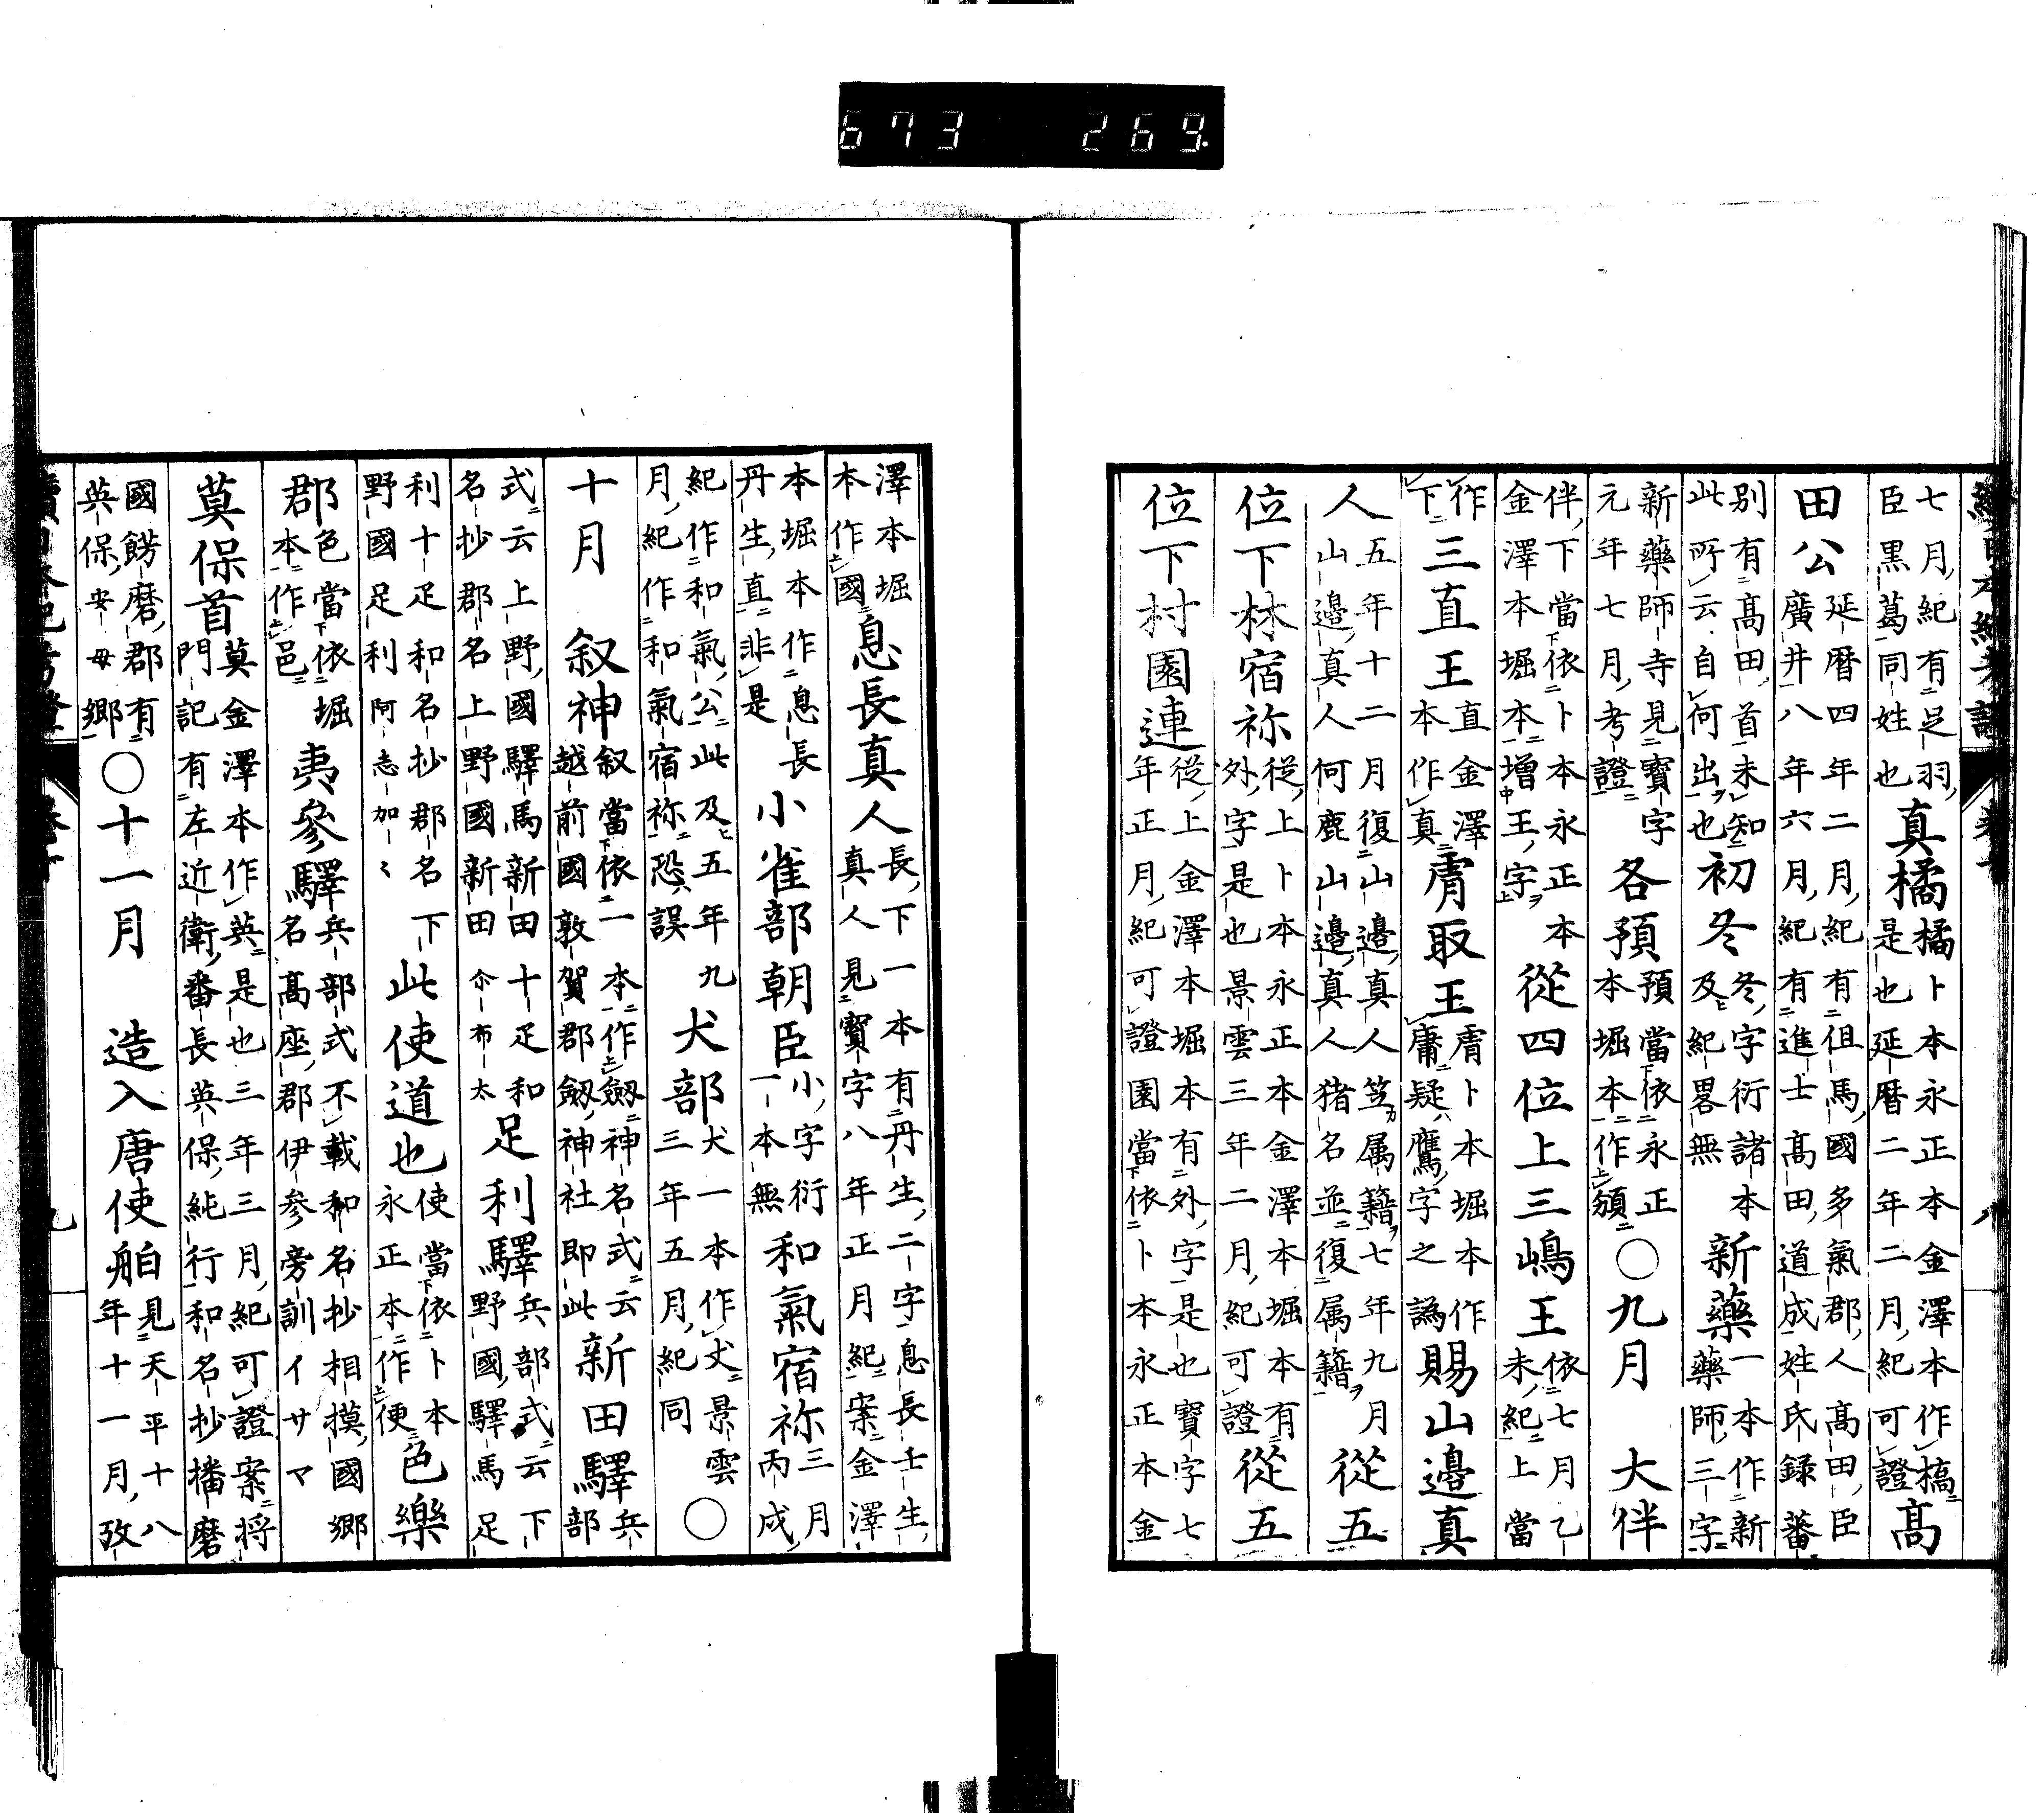 673 269
七月紀有足羽臣黒葛同姓也 真橘 橘卜本永正本金澤本作槁是也延暦二年二月紀可證 高
田公 延暦四年二月紀有但馬國多氣郡人高田臣廣井八年六月紀有進士高田道成姓氏録蕃
別有高田首未知此所云自何出也 初冬 冬字衍諸本及紀畧無 新藥 一本作新藥師三字
新藥師寺見寳字元年七月考證 各預 預當依永正本堀本作頒 ○九月 大伴
伴下當依卜本永正本金澤本堀本増王字 從四位上三嶋王 依七月乙未紀上當
作下 三直王 直金澤本作真 膺取王 膺卜本堀本作庸疑鷹字之譌 賜山邊真
人 五年十二月復山邊真人笠属籍七年九月山邊真人何鹿山邊真人猪名並復属籍 從五
位下林宿祢 從上卜本永正本金澤本堀本有外字是也景雲三年二月紀可證 從五
位下村園連 從上金澤本堀本有外字是也寳字七年正月紀可證園當依卜本永正本金
澤本堀本作國 息長真人 長下一本有丹生二字息長壬生真人見寳字八年正月紀案金澤
本堀本作息長丹生直非是 小雀部朝臣 小字衍一本無 和氣宿祢 三月丙戌
紀作和氣公此及五年九月紀作和氣宿祢恐誤 犬部 犬一本作丈景雲三年五月紀同 ○
十月 叙神 叙當依一本作劔神名式云越前國敦賀郡劔神社即此 新田驛 兵部
式云上野國驛馬新田十疋和名抄郡名上野國新田尒布太 足利驛 兵部式云下野國驛馬足
利十疋和名抄郡名下野國足利阿志加々 此使道也 使當依卜本永正本作便 邑樂
郡 色當依堀本作邑 夷參驛 兵部式不載和名抄相摸國郷名髙座郡伊參旁訓イサマ
莫保首 莫金澤本作英是也三年三月紀可證案將門記有左近衛番長英保純行和名抄播磨
國餝磨郡有英保安母郷 ○十一月 造入唐使舶 見天平十八年十一月攷